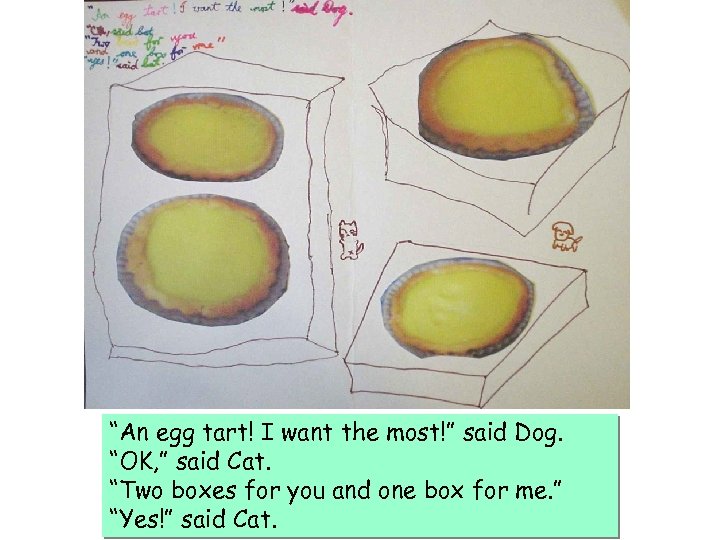 "An egg tart! I want the most!" said Dog.
"OK, said Cat.
"Two boxes for you
and one box for me"
"yes!" said Cat.
“An egg tart! I want the most!” said Dog.
“OK, ” said Cat.
“Two boxes for you and one box for me. ”
“Yes!” said Cat.